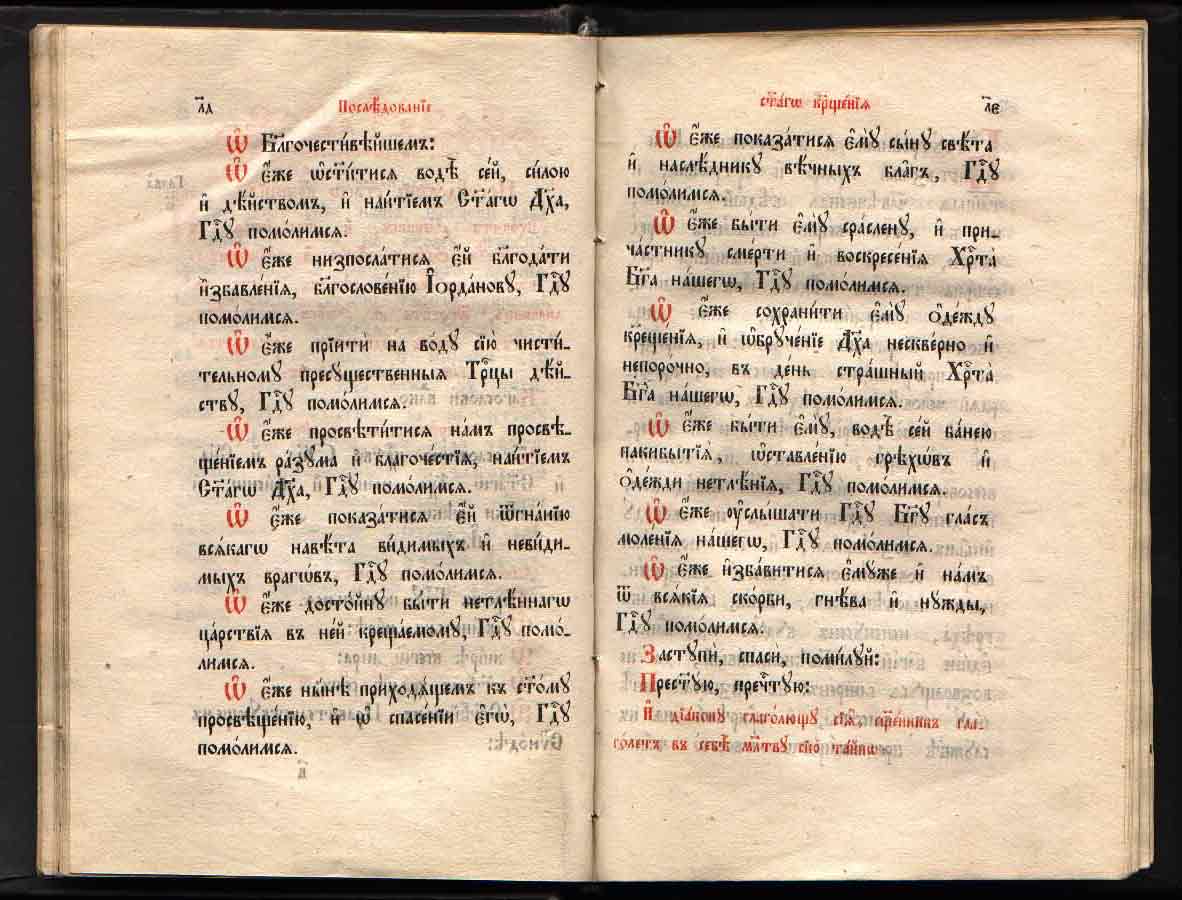 л҃д Послѣ́дованїе
Ѡ҆ Бл҃гочести́вѣйшемъ:
Ѡ҆ є҆́же ѡ҆ст҃и́тисѧ водѣ̀ се́й, си́лою
и҆ дѣ́йствомъ, и҆ наи́тїемъ Ст҃а́гѡ Дх҃а,
Гдⷭ҇ꙋ помо́лимсѧ.
Ѡ҆ є҆́же низпосла́тисѧ є҆́й бл҃года́ти
и҆збавле́нїѧ, бл҃гослове́нїю І҆ѻрда́новꙋ, Гдⷭ҇ꙋ
помо́лимсѧ.
Ѡ҆ є҆́же прїитѝ на во́дꙋ сїю̀ чисти́-
тельномꙋ пресꙋ́щественныѧ Трⷪ҇цы дѣ́й-
ствꙋ, Гдⷭ҇ꙋ помо́лимсѧ.
Ѡ҆ є҆́же просвѣти́тисѧ на́мъ просвѣ-
ще́нїемъ ра́зꙋма и҆ благоче́стїѧ, наи́тїемъ
Ст҃а́гѡ Дх҃а, Гдⷭ҇ꙋ помо́лимсѧ.
Ѡ҆ є҆́же показа́тисѧ є҆́й ѿгна́нїю
всѧ́кагѡ навѣ́та ви́димыхъ и҆ неви́ди-
мыхъ врагѡ́въ, Гдⷭ҇ꙋ помо́лимсѧ.
Ѡ҆ є҆́же досто́йнꙋ бы́ти нетлѣ́ннагѡ
ца́рствїѧ въ не́й креща́емомꙋ, Гдⷭ҇ꙋ помо́-
лимсѧ.
Ѡ҆ є҆́же ны́нѣ приходѧ́щемъ къ ст҃о́мꙋ
просвѣще́нїю, и҆ ѡ҆ спасе́нїи є҆гѡ̀, Гдⷭ҇ꙋ
помо́лимсѧ.
ст҃а́гѡ крⷭ҇ще́нїѧ л҃е
Ѡ҆ є҆́же показа́тисѧ є҆мꙋ̀ сы́нꙋ свѣ́та
и҆ наслѣ́дникꙋ вѣ́чныхъ бла́гъ, Гдⷭ҇ꙋ
помо́лимсѧ.
Ѡ҆ є҆́же бы́ти є҆мꙋ̀ сра́сленꙋ, и҆ при-
ча́стникꙋ сме́рти и҆ воскресе́нїѧ Хрⷭ҇та̀
Бг҃а на́шегѡ, Гдⷭ҇ꙋ помо́лимсѧ.
Ѡ҆ є҆́же сохрани́ти є҆мꙋ̀ ѻ҆де́ждꙋ
крⷭ҇ще́нїѧ, и҆ ѡ҆брꙋче́нїе Дх҃а нескве́рно и҆
непоро́чно, въ де́нь стра́шный Хрⷭ҇та̀
Бг҃а на́шегѡ, Гдⷭ҇ꙋ помо́лимсѧ.
Ѡ҆ є҆́же бы́ти є҆мꙋ̀, водѣ̀ се́й ба́нею
пакибытїѧ̀, ѡ҆ставле́нїю грѣхѡ́въ и҆
ѻ҆де́жди нетлѣ́нїѧ, Гдⷭ҇ꙋ помо́лимсѧ.
Ѡ҆ є҆́же ᲂу҆слы́шати Гдⷭ҇ꙋ Бг҃ꙋ гла́съ
моле́нїѧ на́шегѡ, Гдⷭ҇ꙋ помо́лимсѧ.
Ѡ҆ є҆́же и҆зба́витисѧ є҆мꙋ́же и҆ на́мъ
ѿ всѧ́кїѧ ско́рби, гнѣ́ва и҆ нꙋ́жды,
Гдⷭ҇ꙋ помо́лимсѧ.
Застꙋпѝ, спасѝ, поми́лꙋй:
Прест҃ꙋ́ю, пречⷭ҇тꙋю:
И҆ дїа́конꙋ глаго́лющꙋ сїѧ̑, сщ҃е́нникъ гла-
го́летъ въ себѣ̀ мл҃твꙋ сїю̀ та́йнѡ